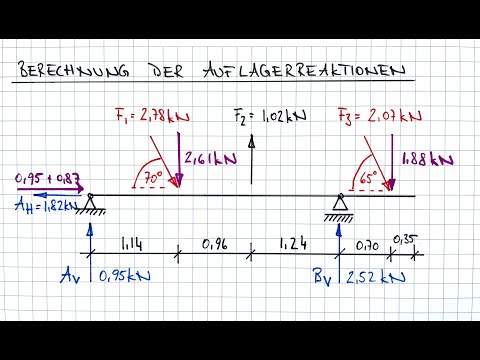 BERECHNUNG DER AUFLAGERREAKTIONEN
F₁ = 2,78kN
F₂ = 1,02kN
F₃ = 2,07kN
2,61kN
1,88kN
70°
65°
0,95 + 0,87
A_H = 1,82kN
1,14
0,96
1,24
0,70
0,35
A_V
0,95kN
B_V
2,52kN